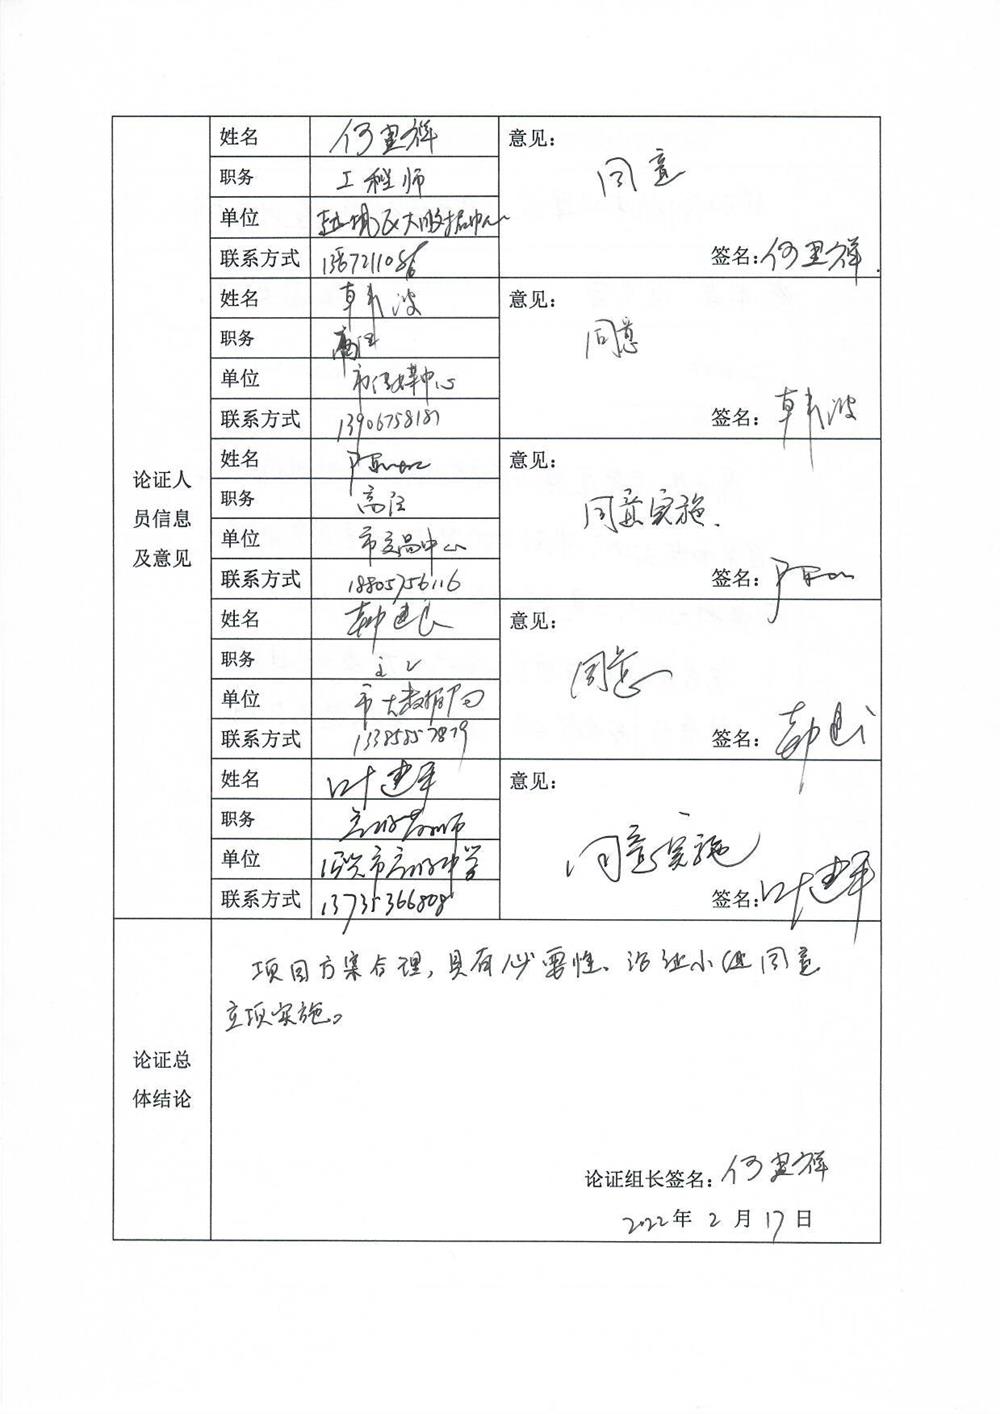 姓名 何里祥 意见：
同意
职务 工程师
单位 越城区大数据中心
联系方式 签名：何里祥
姓名 韩波 意见：
同意
职务 高工
单位 市传媒中心
联系方式 13906758187 签名：韩波
姓名 意见：
论证人
员信息
及意见
职务 高工
同意实施.
单位 市交易中心
联系方式 18805756116 签名：
姓名 意见：
同意
职务
单位 市大数据局
联系方式 13385857879 签名：
姓名 叶建军 意见：
职务
同意实施
单位 绍兴市高级中学
联系方式 13735366808 签名：叶建军
项目方案合理，具有必要性、论证小组同意
立项实施。
论证总
体结论
论证组长签名：何里祥
2022年 2 月 17 日